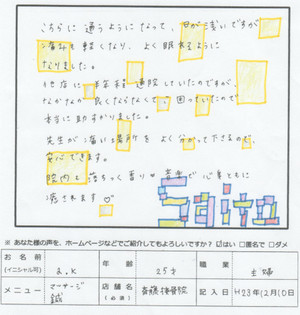 こちらに通うようになって、日が浅いですが
痛みも軽くなり、よく眠れるように
なりました。
他店に半年程通院していたのですが、
なかなか良くならなくて、困っていたので
本当に助かりました。
先生が痛い場所をよく分かって下さるので、
安心できます。
院内も落ちつく香り・音楽で心身ともに
癒されます♡
Saita
※ あなた様の声を、ホームページなどでご紹介してもよろしいですか？ ☑はい □匿名で □ダメ
お名前 (イニシャル可) a.k 年齢 25才 職業 主婦
メニュー マッサージ 鍼 店舗名 (必須) 斉藤接骨院 記入日 H23年12月10日